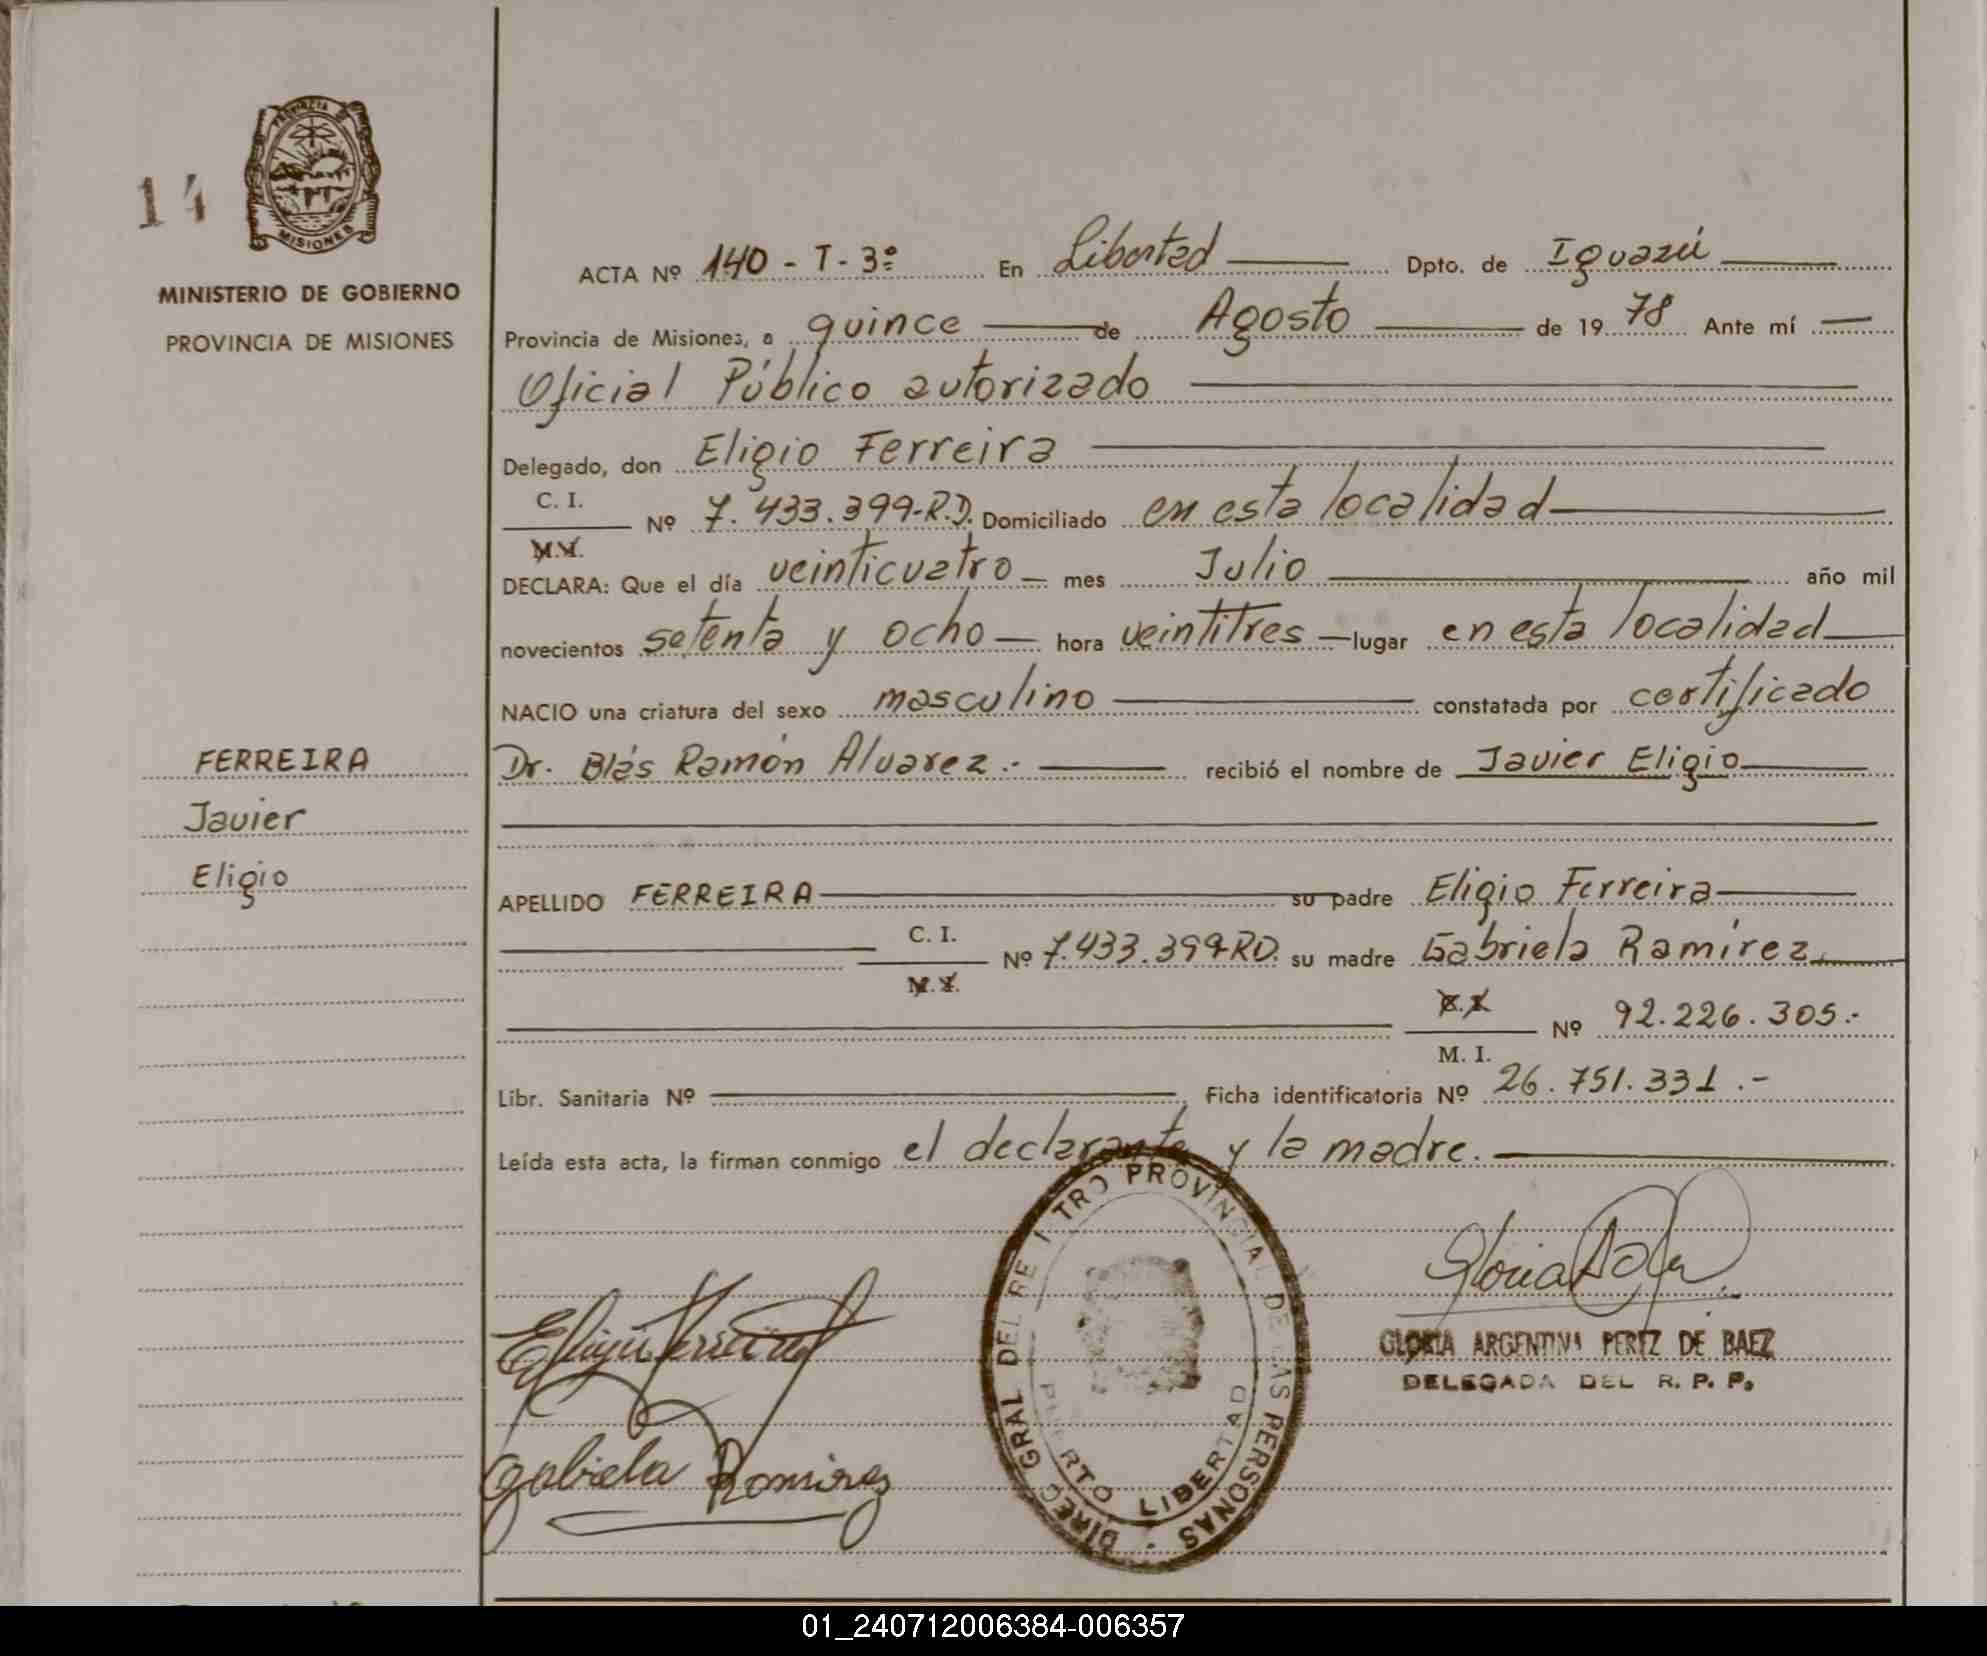 PROVINCIA
MISIONES
14
MINISTERIO DE GOBIERNO
PROVINCIA DE MISIONES
FERREIRA
Javier
Eligio
ACTA Nº 140 - T - 3º En Libertad Dpto. de Iguazú
Provincia de Misiones, a quince de Agosto de 1978 Ante mí
Oficial Público autorizado
Delegado, don Eligio Ferreira
C. I.
Nº 7.433.399-R.D. Domiciliado en esta localidad
M.I.
DECLARA: Que el día veinticuatro mes Julio año mil
novecientos setenta y ocho hora veintitres lugar en esta localidad
NACIO una criatura del sexo masculino constatada por certificado
Dr. Blás Ramón Alvarez.- recibió el nombre de Javier Eligio
APELLIDO FERREIRA su padre Eligio Ferreira
C. I.
Nº 7.433.399-RD. su madre Gabriela Ramírez
M.I.
C.I.
Nº 92.226.305.-
M. I.
Libr. Sanitaria Nº Ficha identificatoria Nº 26.751.331.-
Leída esta acta, la firman conmigo el declarante y la madre.
Eligio Ferreira
Gabriela Ramirez
DIREC GRAL DEL RE ITRO PROVINCIAL DE LAS PERSONAS
PUERTO LIBERTAD
GLORIA ARGENTINA PEREZ DE BAEZ
DELEGADA DEL R. P. P.
01_240712006384-006357